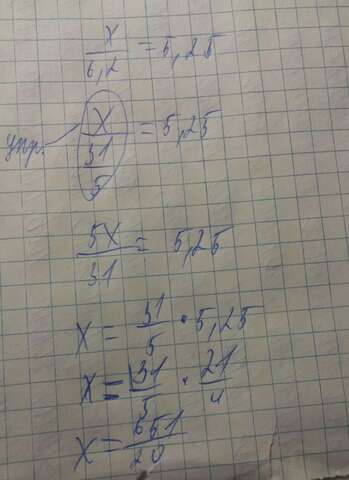 x/6,2 = 5,25
упр. x/(31/5) = 5,25
5x/31 = 5,25
x = 31/5 · 5,25
x = 31/5 · 21/4
x = 651/20